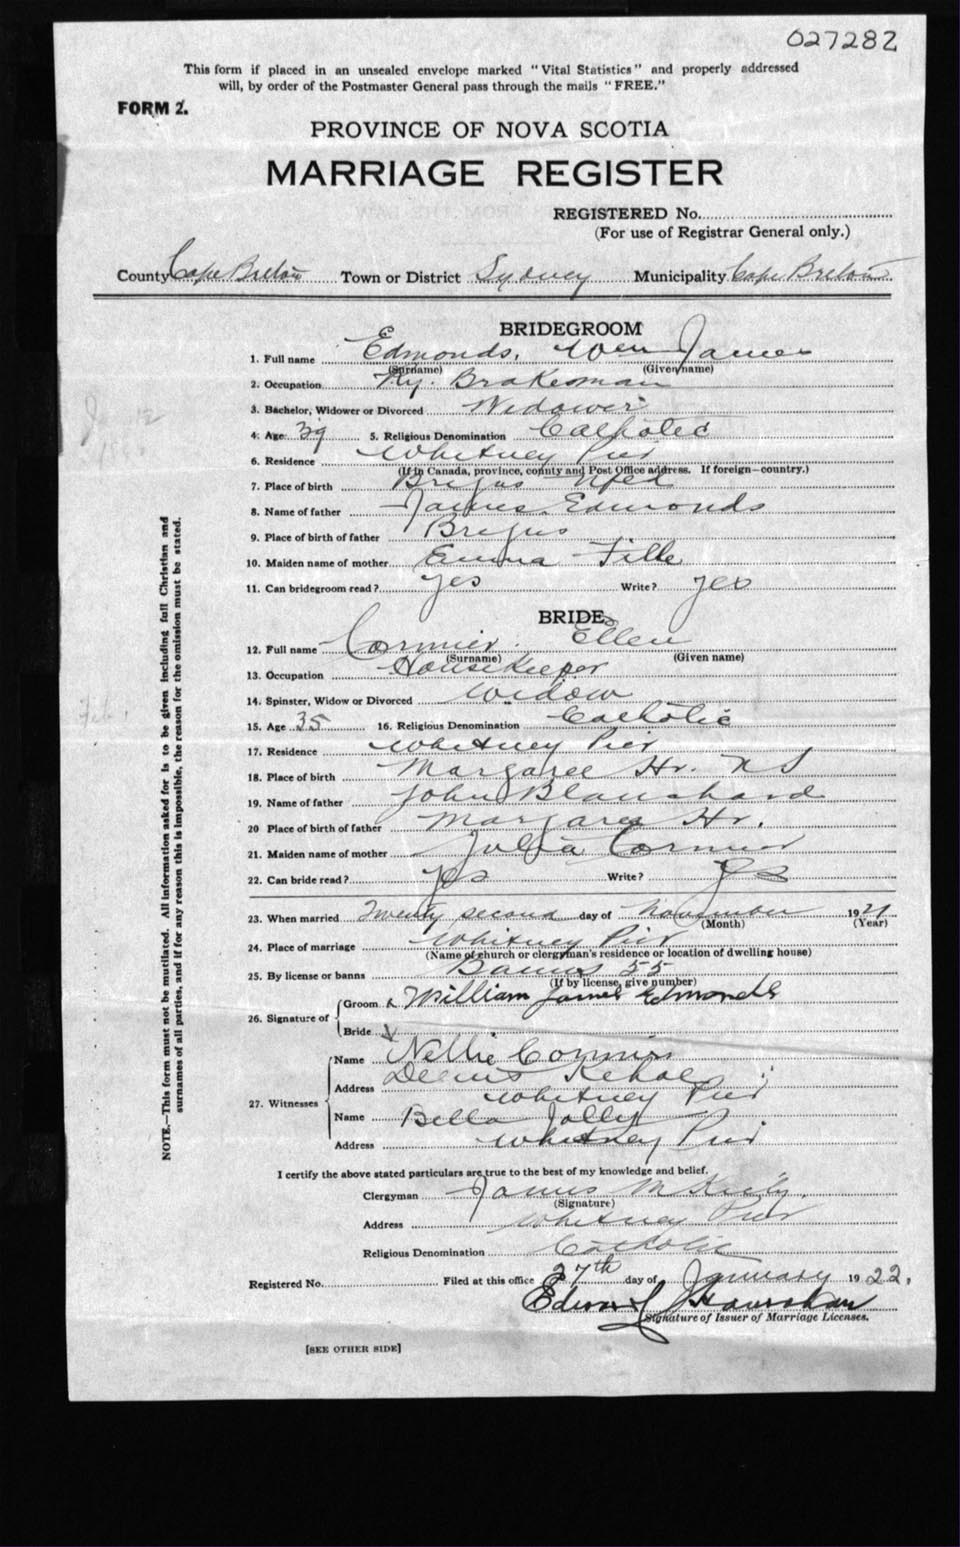 027282
This form if placed in an unsealed envelope marked "Vital Statistics" and properly addressed
will, by order of the Postmaster General pass through the mails "FREE."
FORM 2.
PROVINCE OF NOVA SCOTIA
MARRIAGE REGISTER
REGISTERED No.
(For use of Registrar General only.)
County Cape Breton Town or District Sydney Municipality Cape Breton
BRIDEGROOM
1. Full name Edmonds, Wm James
(Surname) (Given name)
2. Occupation Ry. Brakeman
3. Bachelor, Widower or Divorced Widower
4. Age 39 5. Religious Denomination Catholic
6. Residence Whitney Pier
(If in Canada, province, county and Post Office address. If foreign—country.)
7. Place of birth Brigus Nfld
8. Name of father James Edmonds
9. Place of birth of father Brigus
10. Maiden name of mother Emma
11. Can bridegroom read? yes Write? yes
BRIDE
12. Full name Cormier Ellen
(Surname) (Given name)
13. Occupation Housekeeper
14. Spinster, Widow or Divorced Widow
15. Age 35 16. Religious Denomination Catholic
17. Residence Whitney Pier
18. Place of birth Margaree Hr. N S
19. Name of father John Blanchard
20 Place of birth of father Margaree Hr.
21. Maiden name of mother Julia Cormier
22. Can bride read? yes Write? yes
23. When married Twenty second day of November 1921
(Month) (Year)
24. Place of marriage Whitney Pier
(Name of church or clergyman's residence or location of dwelling house)
25. By license or banns Banns 55
(If by license, give number)
26. Signature of Groom William James Edmonds
Bride
27. Witnesses Name Nellie Cormier
Address Dennis Kehoe
Whitney Pier
Name Bella Jolly
Address Whitney Pier
NOTE.—This form must not be mutilated. All information asked for is to be given including full Christian and
surnames of all parties, and if for any reason this is impossible, the reason for the omission must be stated.
I certify the above stated particulars are true to the best of my knowledge and belief.
Clergyman James
(Signature)
Address Whitney Pier
Religious Denomination Catholic
Registered No. Filed at this office 27th day of January 1922.
Edward
Signature of Issuer of Marriage Licenses.
[SEE OTHER SIDE]